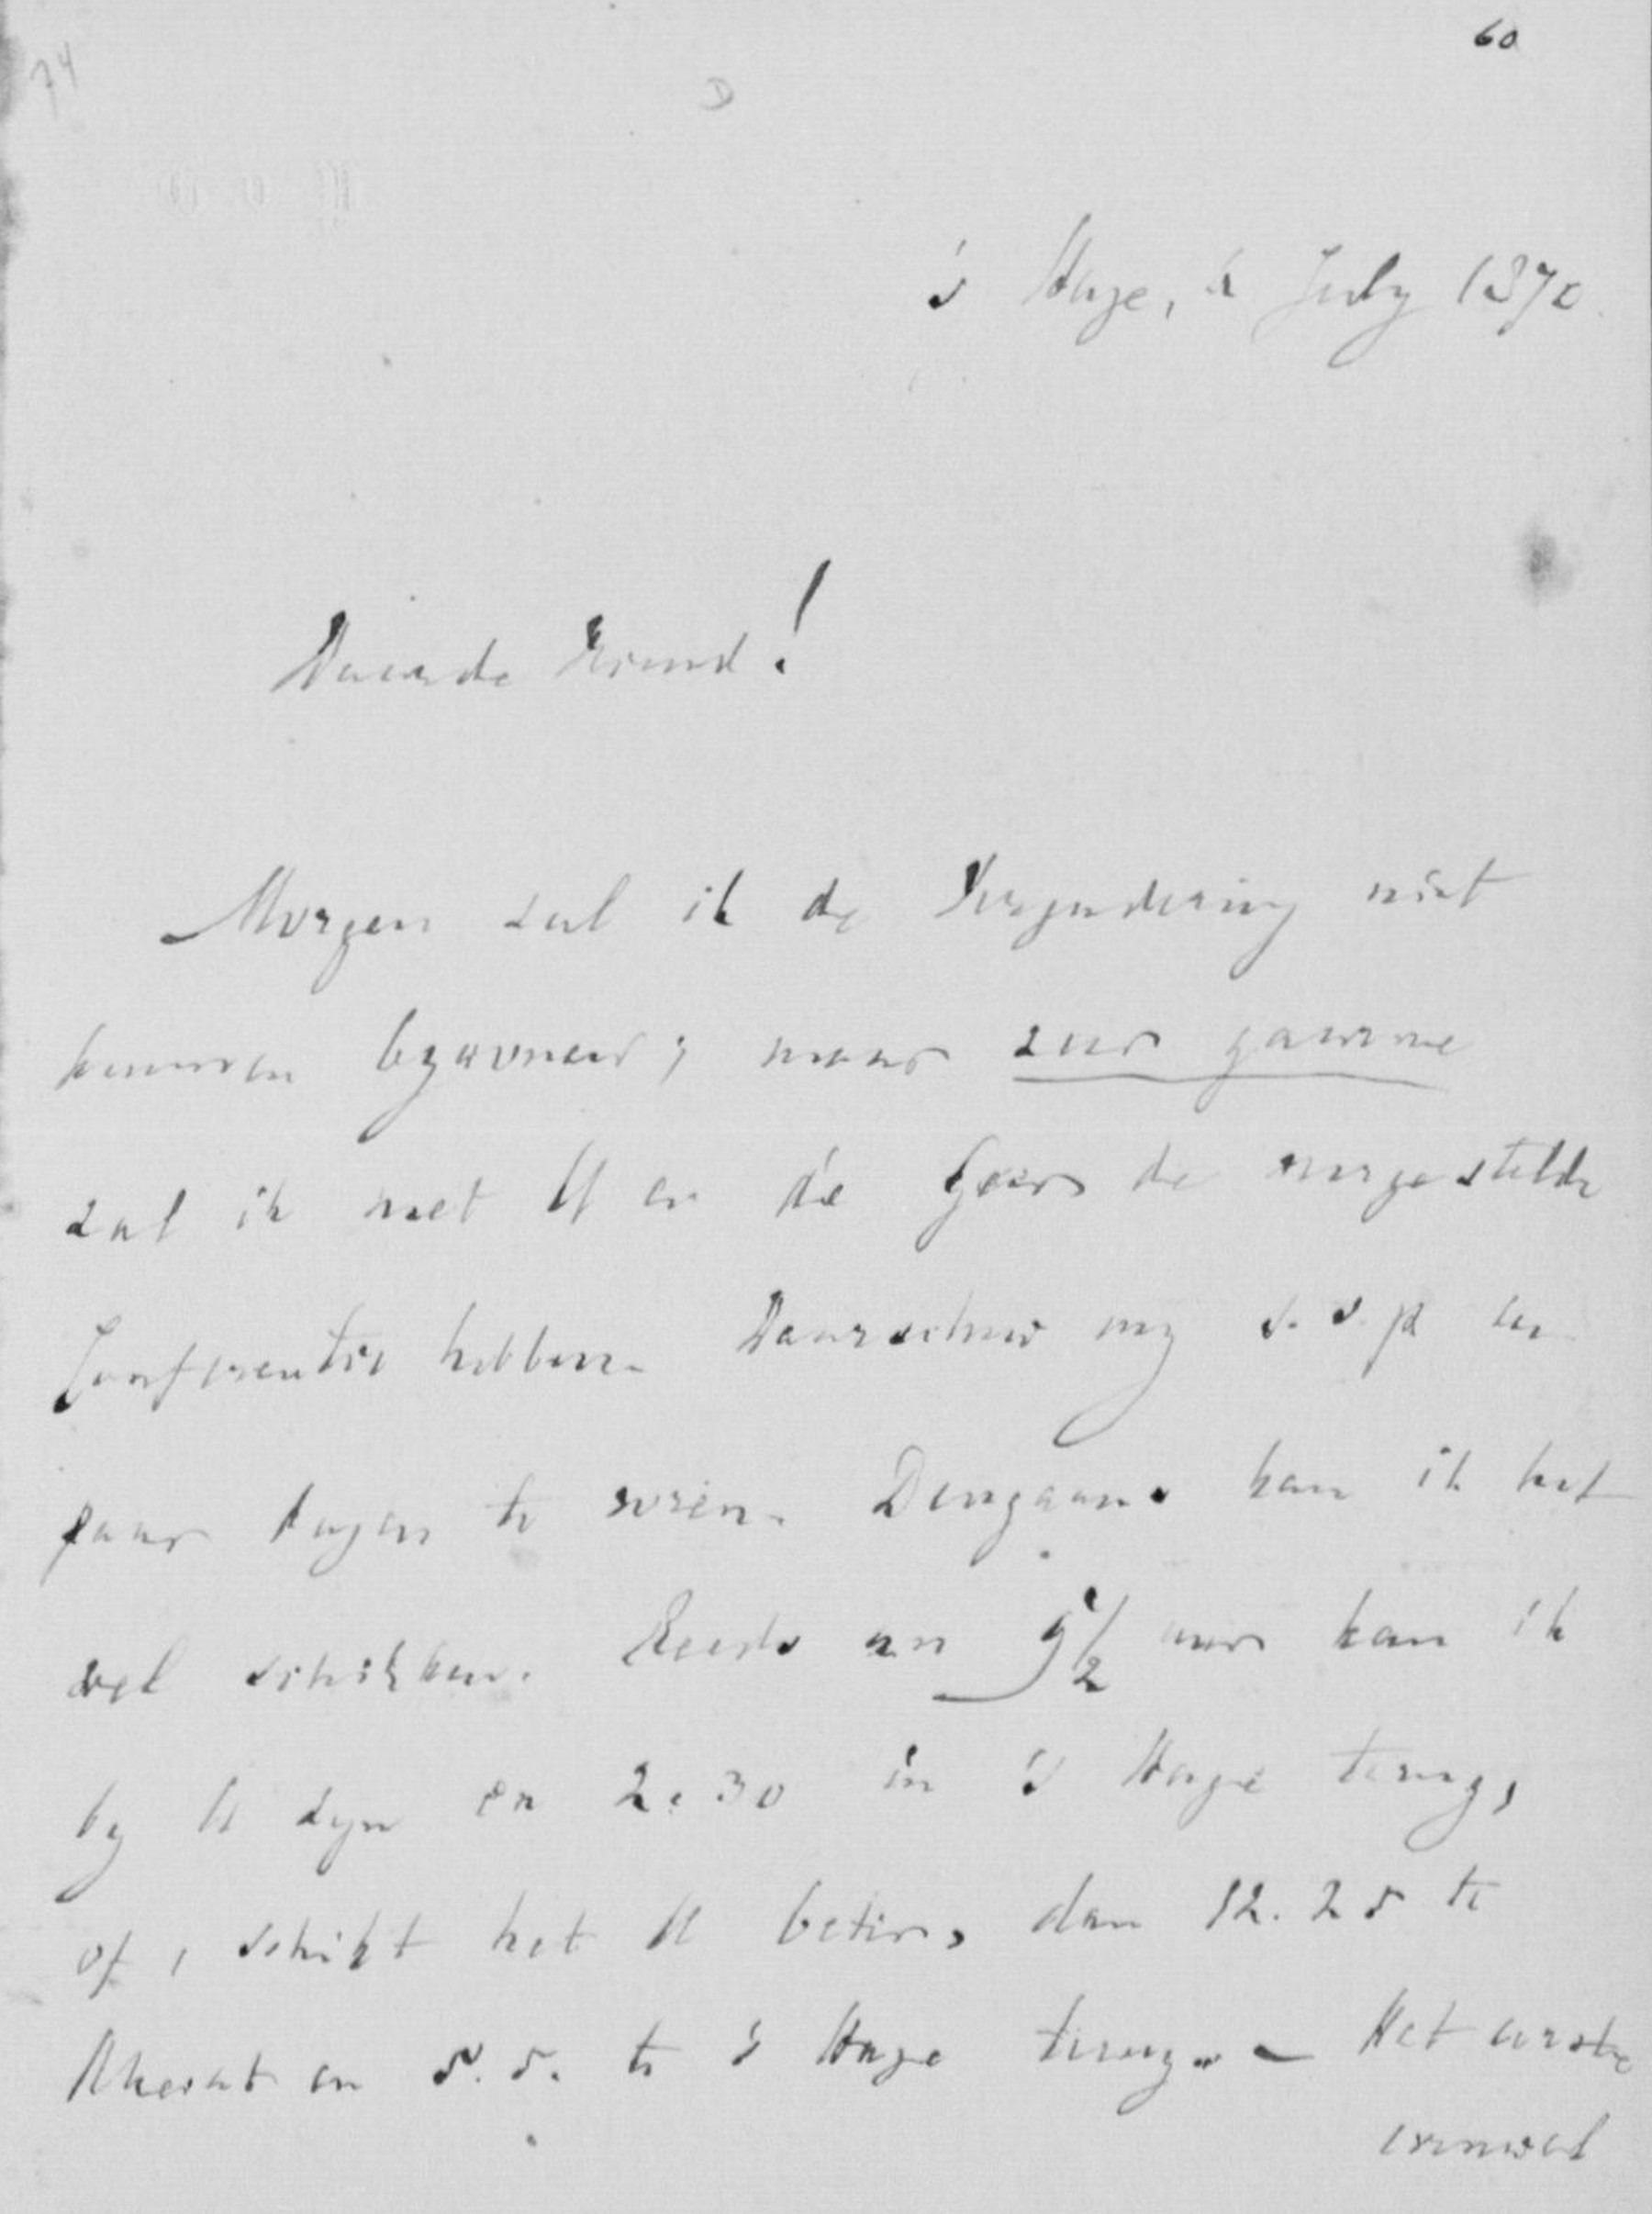 60
74
D
's Hage, 4 July 1870
Waarde Vriend!
Morgen zal ik de Vergadering niet
kunnen bijwonen; maar zeer gaarne
zal ik met U en de Geer de voorgestelde
Conferentie hebben. Waarschuw mij s.s.p een
paar dagen te voren. Doorgaans kan ik het
wel schikken. Reeds om 9 1/2 uur kan ik
bij U zijn en 2.30 in 's Hage terug,
of, schikt het U beter, dan 12.25 te
Utrecht en 5.5. te 's Hage terug. – Het eerste
evenwel